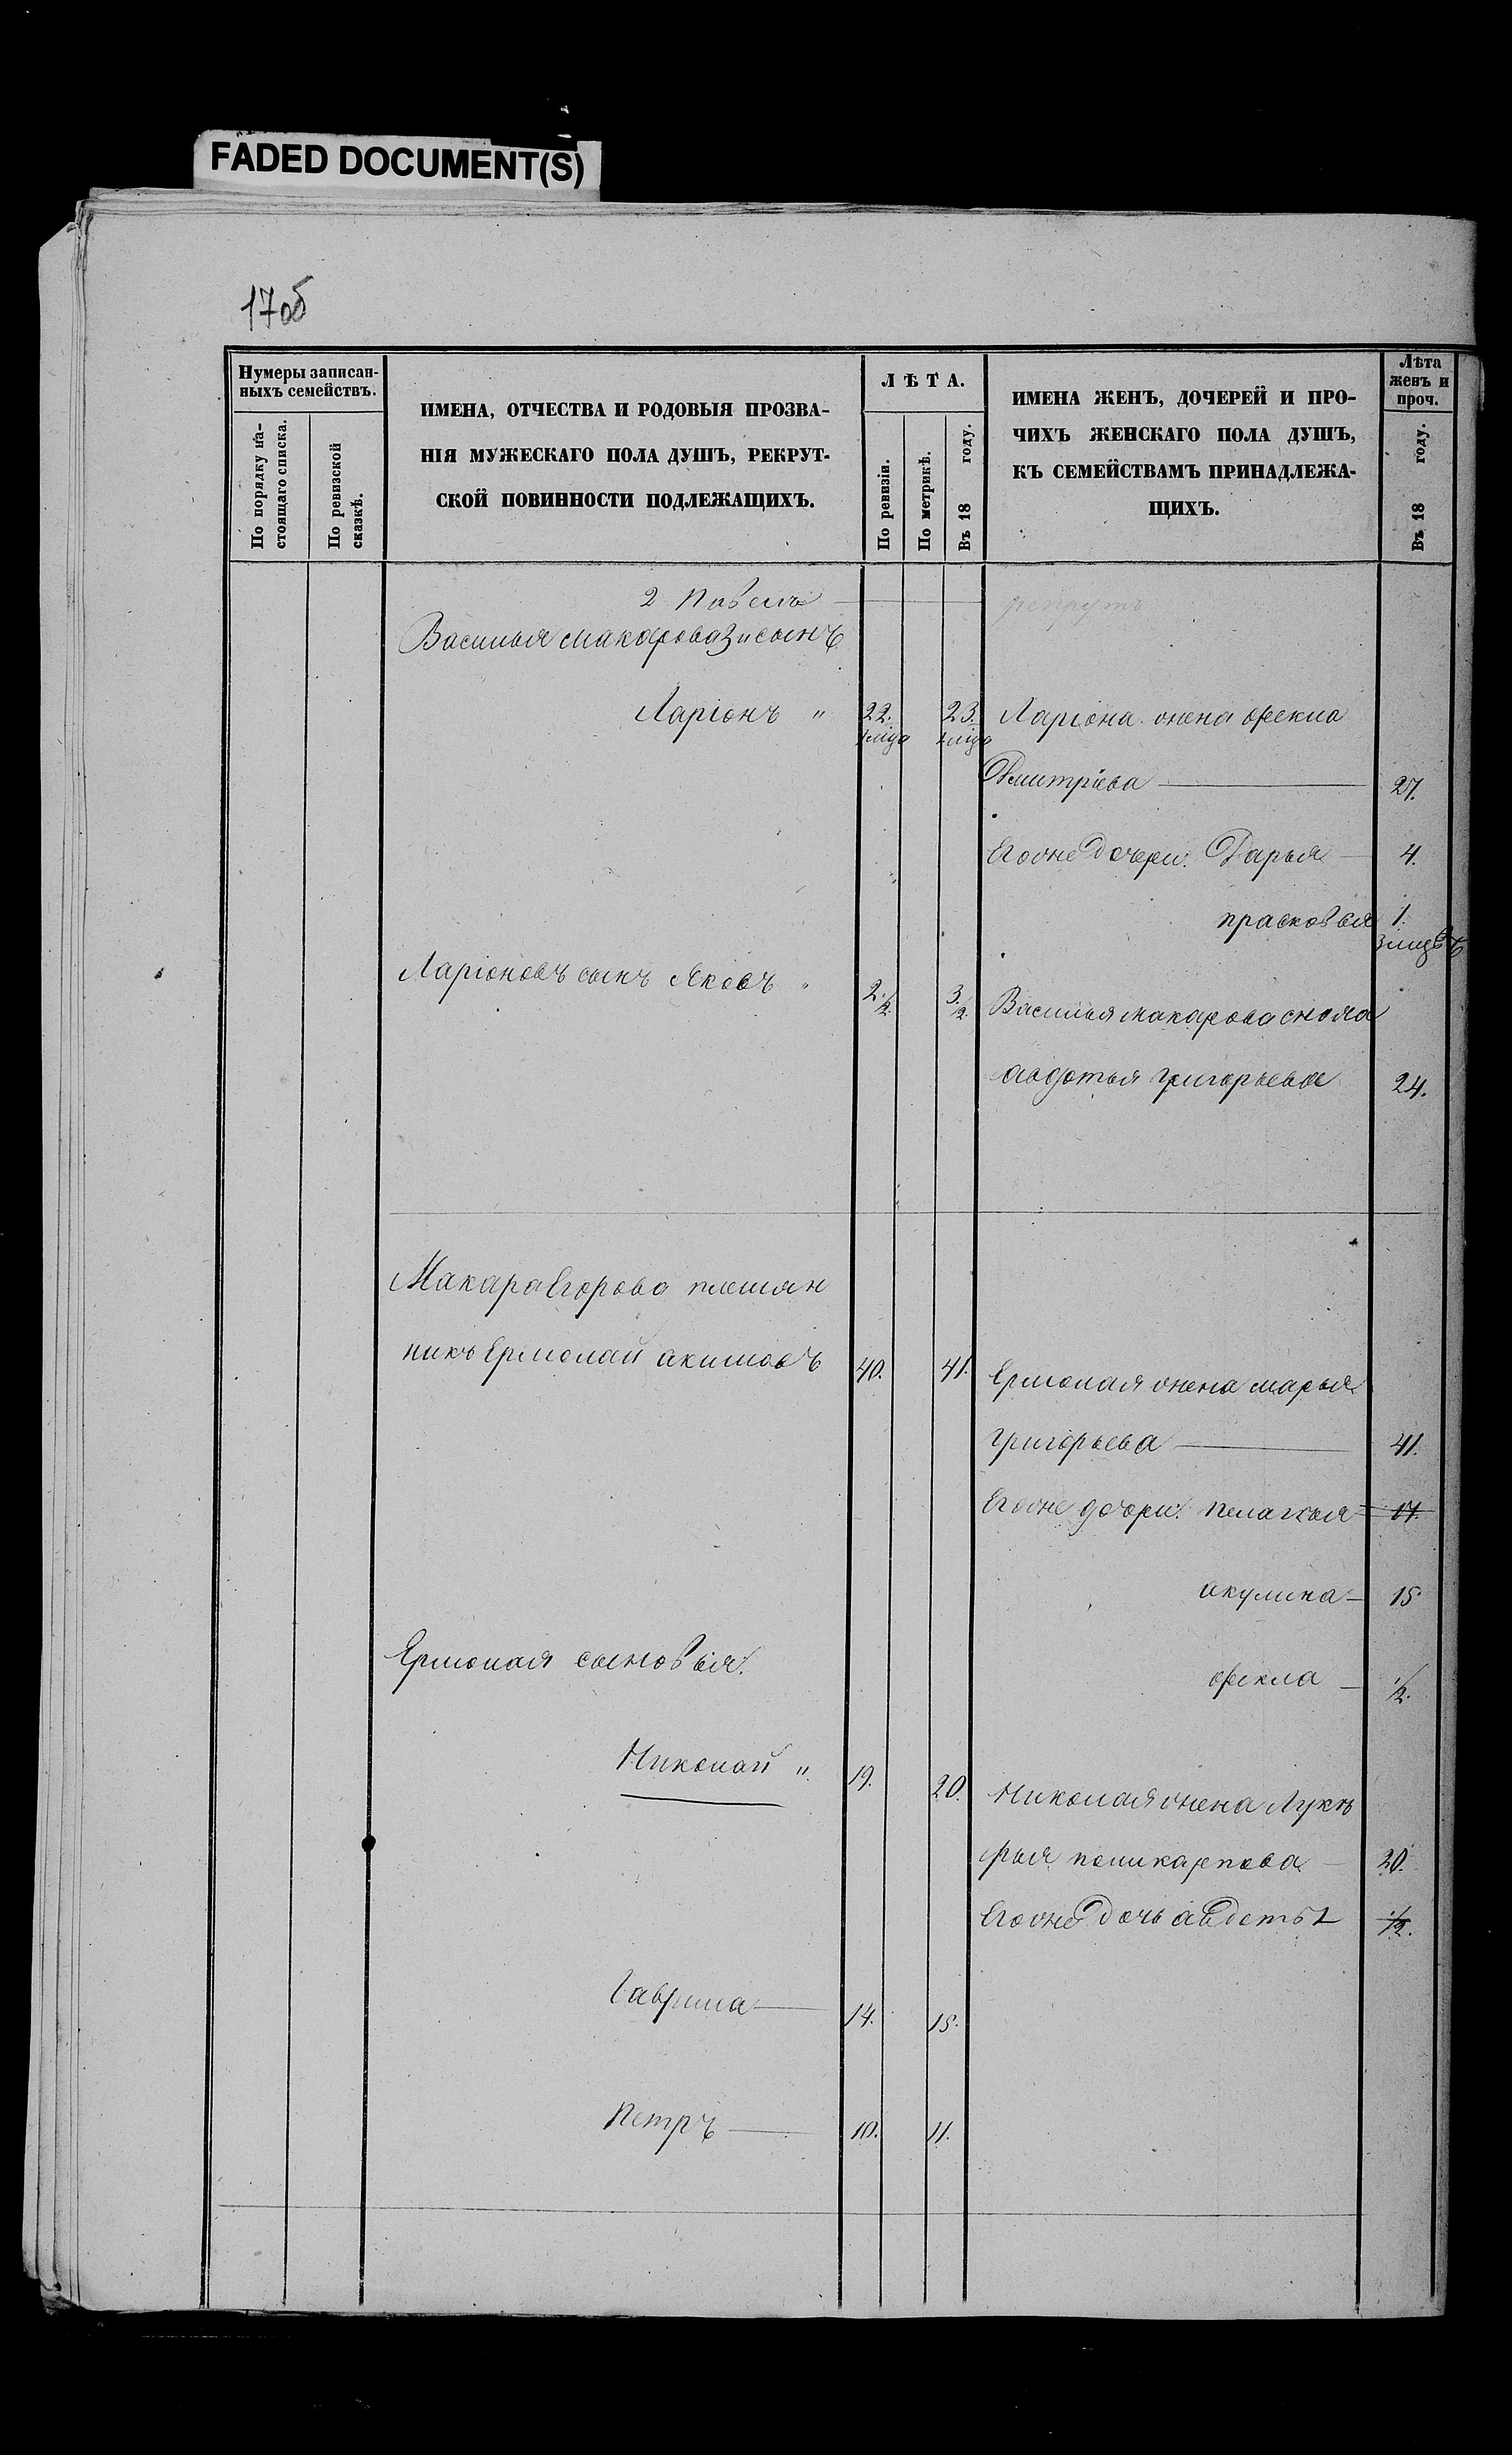 FADED DOCUMENT(S)
17об
Нумеры записан-
ныхъ семействъ.
По порядку на-
стоящаго списка.
По ревизской
сказкѣ.
ИМЕНА, ОТЧЕСТВА И РОДОВЫЯ ПРОЗВА-
НІЯ МУЖЕСКАГО ПОЛА ДУШЪ, РЕКРУТ-
СКОЙ ПОВИННОСТИ ПОДЛЕЖАЩИХЪ.
ЛѢТА.
По ревизіи.
По метрикѣ.
Въ 18 году.
ИМЕНА ЖЕНЪ, ДОЧЕРЕЙ И ПРО-
ЧИХЪ ЖЕНСКАГО ПОЛА ДУШЪ,
КЪ СЕМЕЙСТВАМЪ ПРИНАДЛЕЖА-
ЩИХЪ.
Лѣта
женъ и
проч.
Въ 18 году.
2 Павелъ рекрутъ
Василья Макарова 3й сынъ
Ларіонъ " 22. 23. Ларіона жена Фекла
Дмитріева 27.
Егоже дочери: Дарья 4.
прасковья 1.
Ларіоновъ сынъ Яковъ " 2 1/2. 3 1/2.
Василья макарова сноха
авдотья григорьева 24.
Макара Егорова племян
никъ Ермолай акимовъ 40. 41.
Ермолая жена марья
григорьева 41.
Егоже дочери: пелагья 17.
акулина 15
Ермолая сыновья:
фекла 1/2.
Николай " 19. 20.
Николая жена Лукѣ
рья поликарпова 20.
Егоже дочь авдотья 1/2.
Гаврила 14. 15.
Петръ 10. 11.